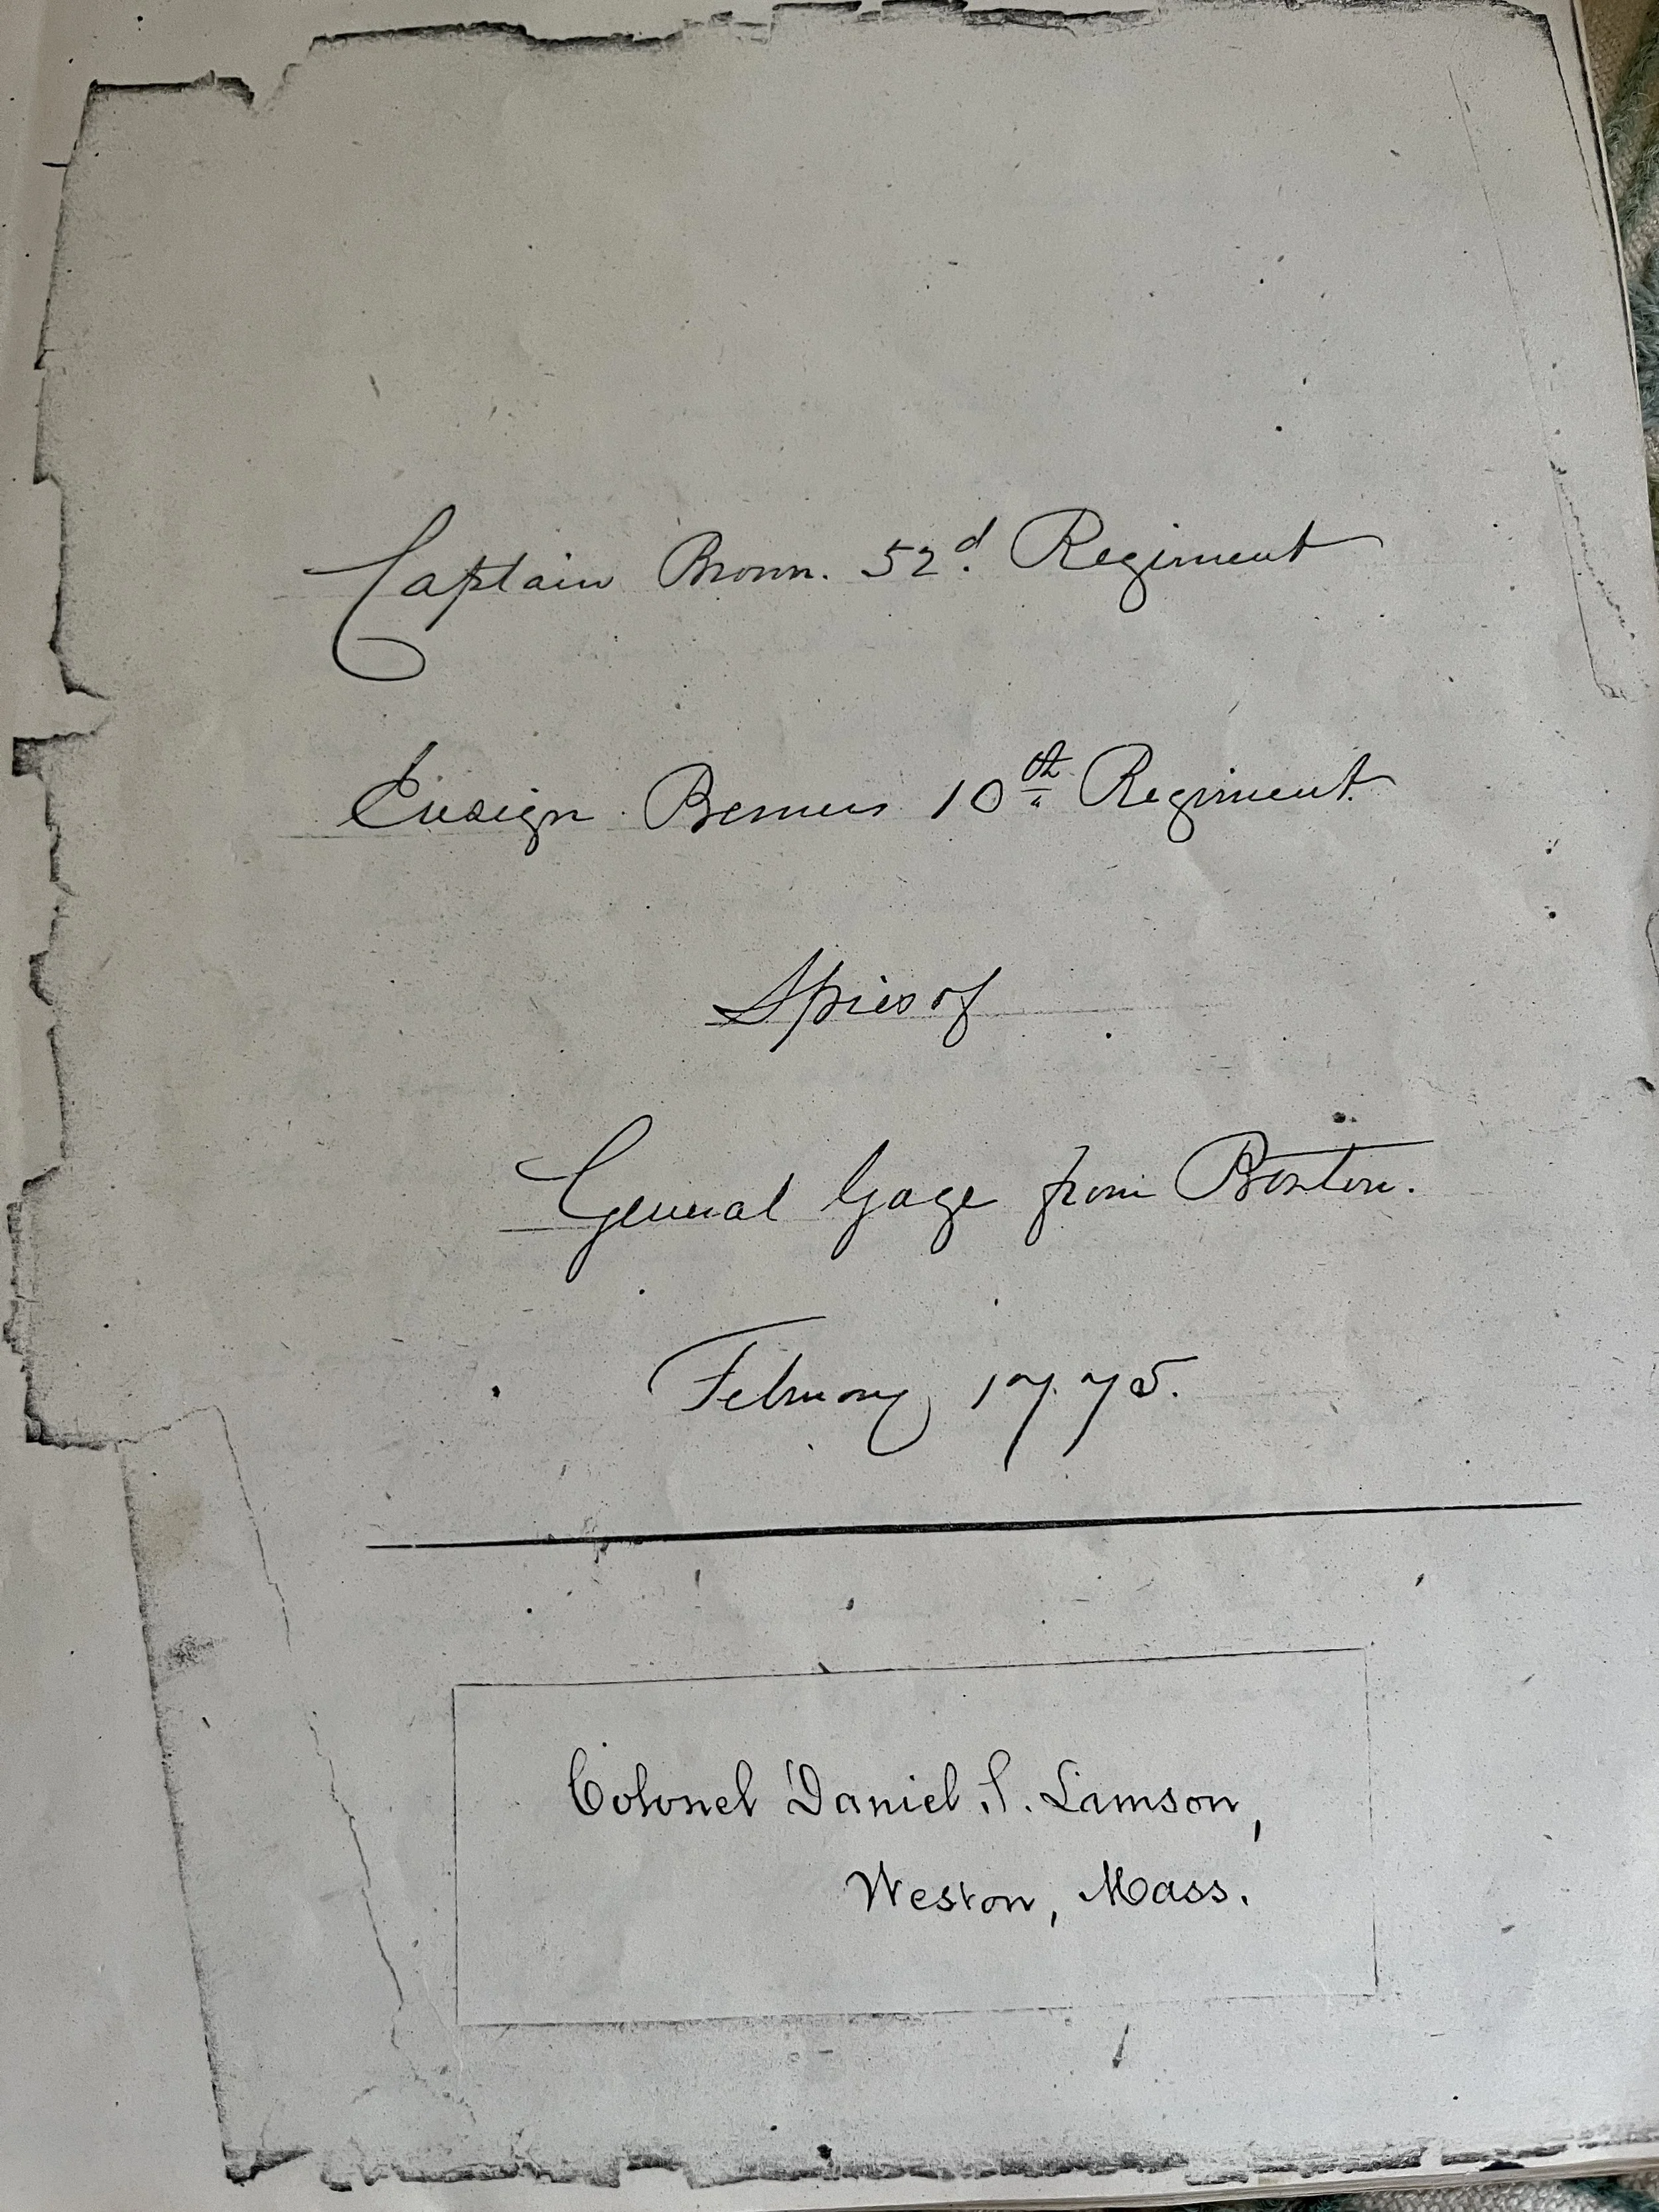 Captain Brown. 52d. Regiment
Ensign Berneis 10th Regiment.
Spies of
General Gage from Boston.
February 1775.
Colonel Daniel S. Lamson,
Weston, Mass.